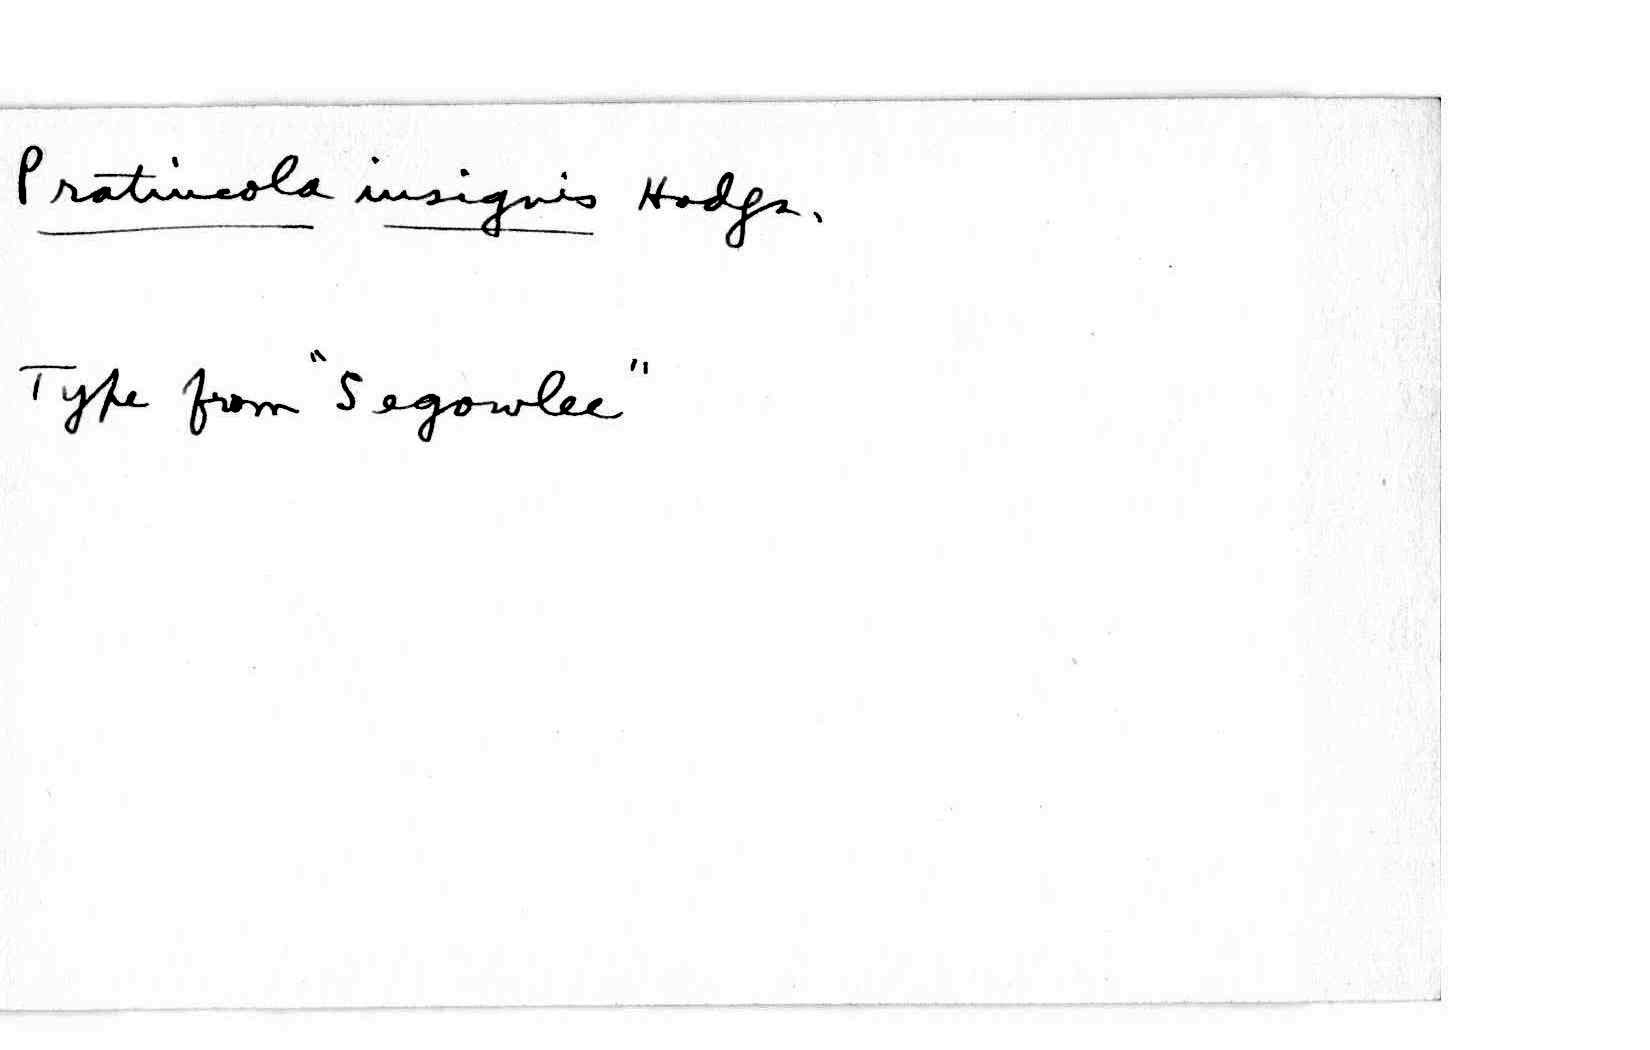 Pratincola insignis Hodgs.
Type from "Segowlee"